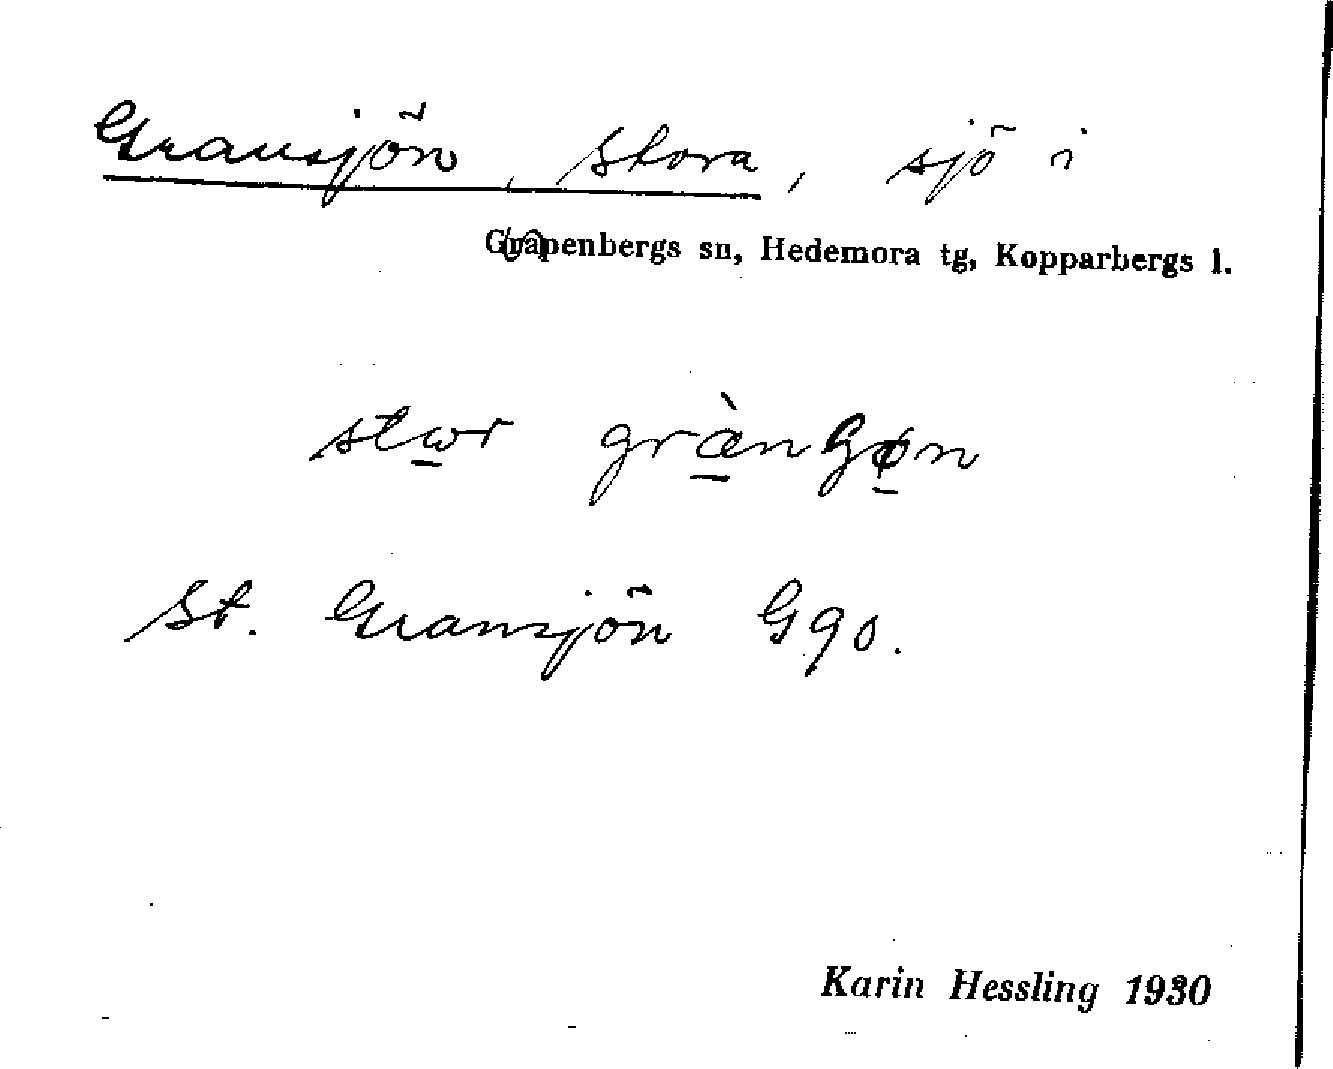 Gransjön, Stora, sjö i
Garpenbergs sn, Hedemora tg, Kopparbergs l.
St. Gransjön G90.
Karin Hessling 1930